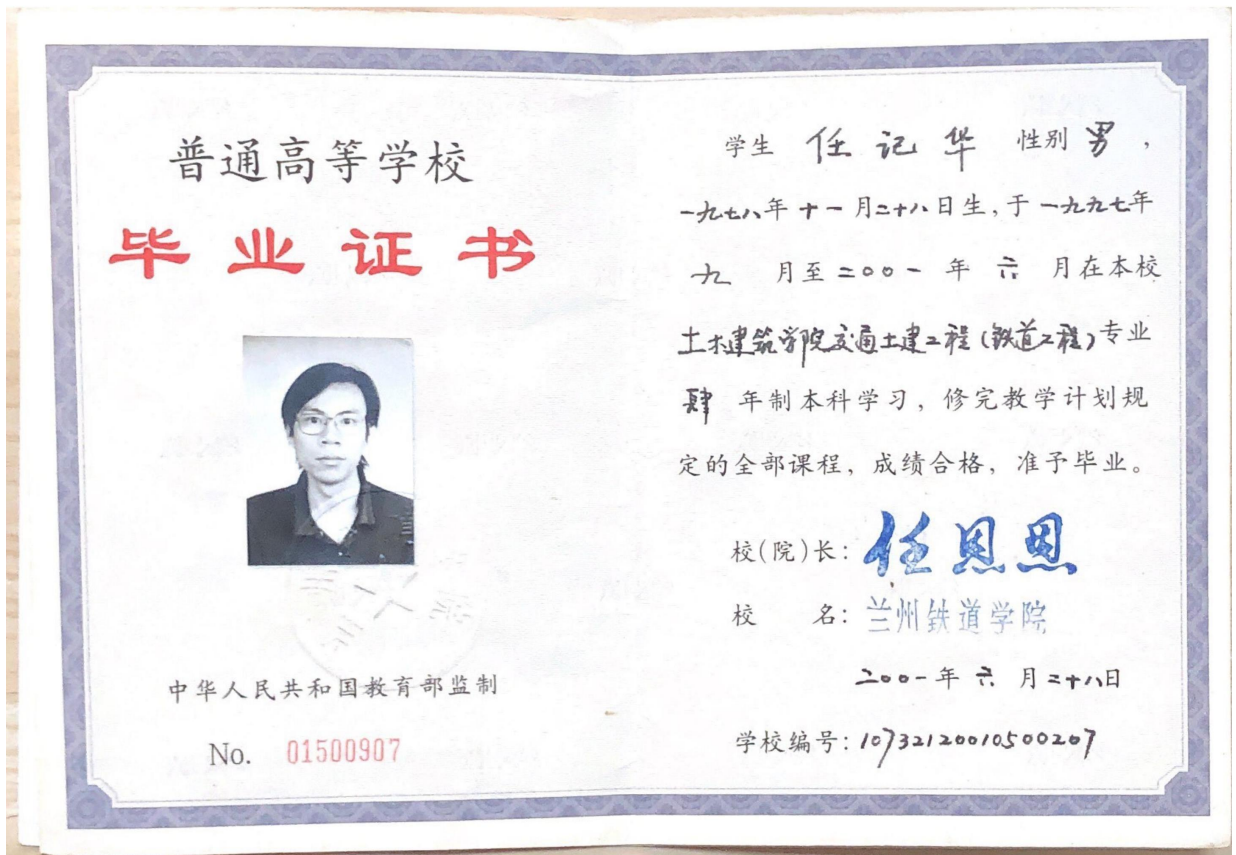 普通高等学校
毕业证书
中华人民共和国教育部监制
No. 01500907
学生 任记华 性别 男,
一九七八年十一月二十八日生,于一九九七年
九 月至二〇〇一 年 六 月在本校
土木建筑学院交通土建工程(铁道工程)专业
肆 年制本科学习,修完教学计划规
定的全部课程,成绩合格,准予毕业。
校(院)长: 任恩恩
校 名: 兰州铁道学院
二〇〇一年 六 月二十八日
学校编号: 10732120010500207